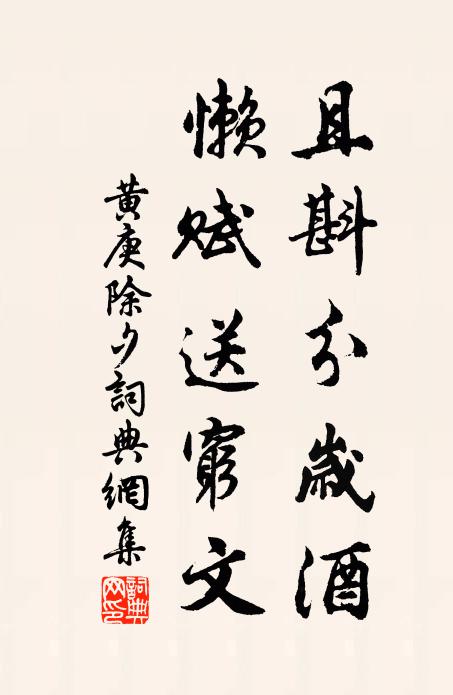 且斟分歲酒
懶賦送窮文
黄庚除夕詞典網集
詞典网印